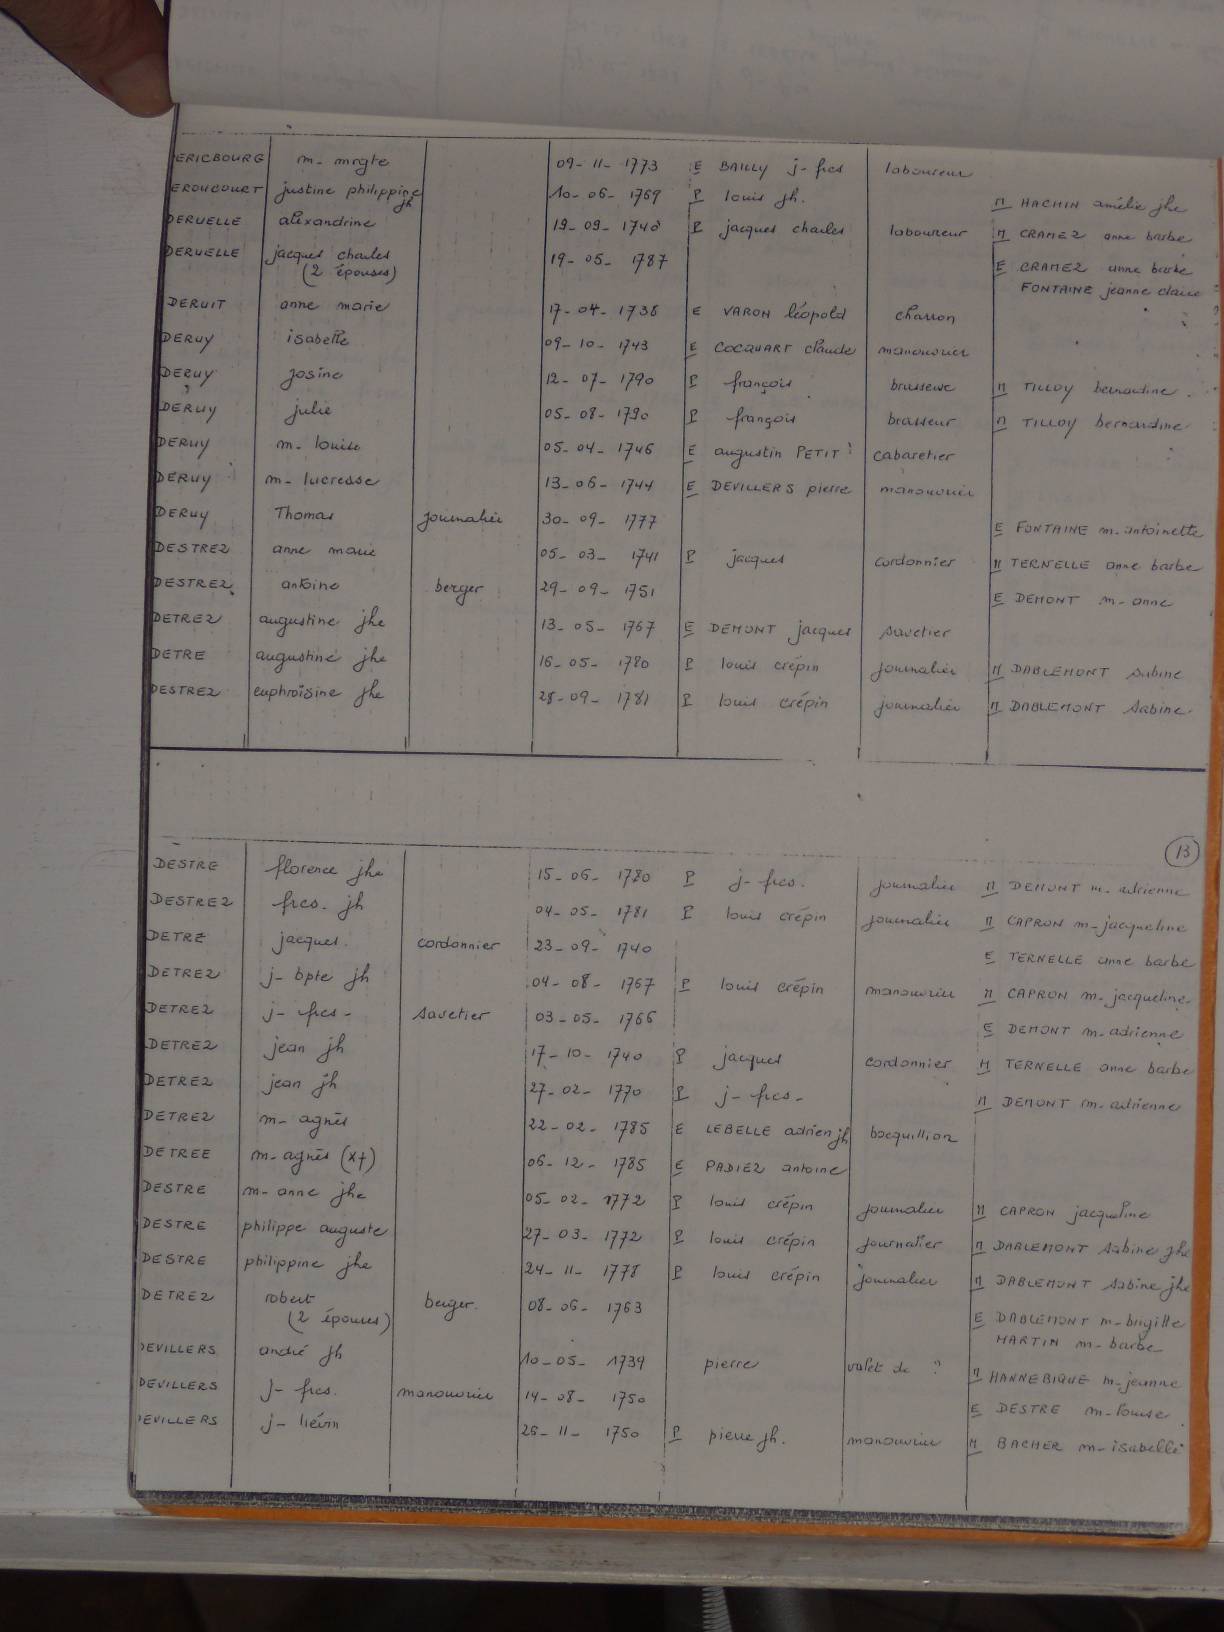 ERICBOURG m- mrgte 09-11-1773 E BAILLY j-fres laboureur
EROUCOURT justine philippine jh 10-06-1769 P louis jh. M HACHIN amélie jhe
DERUELLE alexandrine 19-09-1740 P jacques charles laboureur M CRAMEZ anne barbe
DERUELLE jacques charles 19-05-1787 E CRAMEZ anne barbe
(2 épouses) FONTAINE jeanne claire
DERUIT anne marie 17-04-1738 E VARON léopold charron
DERUY isabelle 09-10-1743 E COCQUART claude manouvrier
DERUY josine 12-07-1790 P françois brasseur M TILLOY bernardine
DERUY julie 05-08-1790 P françois brasseur M TILLOY bernardine
DERUY m- louise 05-04-1746 E augustin PETIT cabaretier
DERUY m- lucresse 13-06-1744 E DEVILLERS pierre manouvrier
DERUY Thomas journalier 30-09-1777 E FONTAINE m-antoinette
DESTREZ anne marie 05-03-1741 P jacques cordonnier M TERNELLE anne barbe
DESTREZ antoine berger 29-09-1751 E DEMONT m-anne
DETREZ augustine jhe 13-05-1767 E DEMONT jacques savetier
DETRE augustine jhe 16-05-1780 P louis crépin journalier M DABLEMONT sabine
DESTREZ euphroisine jhe 28-09-1781 P louis crépin journalier M DABLEMONT sabine
13
DESTRE florence jhe 15-06-1780 P j-fres. journalier M DEMONT m-adrienne
DESTREZ fres. jh 04-05-1781 P louis crépin journalier M CAPRON m-jacqueline
DETRE jacques. cordonnier 23-09-1740 E TERNELLE anne barbe
DETREZ j-bpte jh 04-08-1767 P louis crépin manouvrier M CAPRON m-jacqueline
DETREZ j-fres- savetier 03-05-1766 E DEMONT m-adrienne
DETREZ jean jh 17-10-1740 P jacques cordonnier M TERNELLE anne barbe
DETREZ jean jh 27-02-1770 P j-fres- M DEMONT m-adrienne
DETREZ m- agnès 22-02-1785 E LEBELLE adrien jh bocquillion
DETREE m-agnès (x+) 06-12-1785 E PADIEZ antoine
DESTRE m-anne jhe 05-02-1772 P louis crépin journalier M CAPRON jacqueline
DESTRE philippe auguste 27-03-1772 P louis crépin journalier M DABLEMONT sabine jhe
DESTRE philippine jhe 24-11-1778 P louis crépin journalier M DABLEMONT sabine jhe
DETREZ robert berger. 08-06-1763 E DABLEMONT m-brigitte
(2 épouses) MARTIN m-barbe
DEVILLERS andré jh 10-05-1739 pierre valet de ? M HANNEBIQUE m-jeanne
DEVILLERS j-fres. manouvrier 14-08-1750 E DESTRE m-louise
EVILLERS j-liévin 26-11-1750 P pierre jh. manouvrier M BACHER m-isabelle